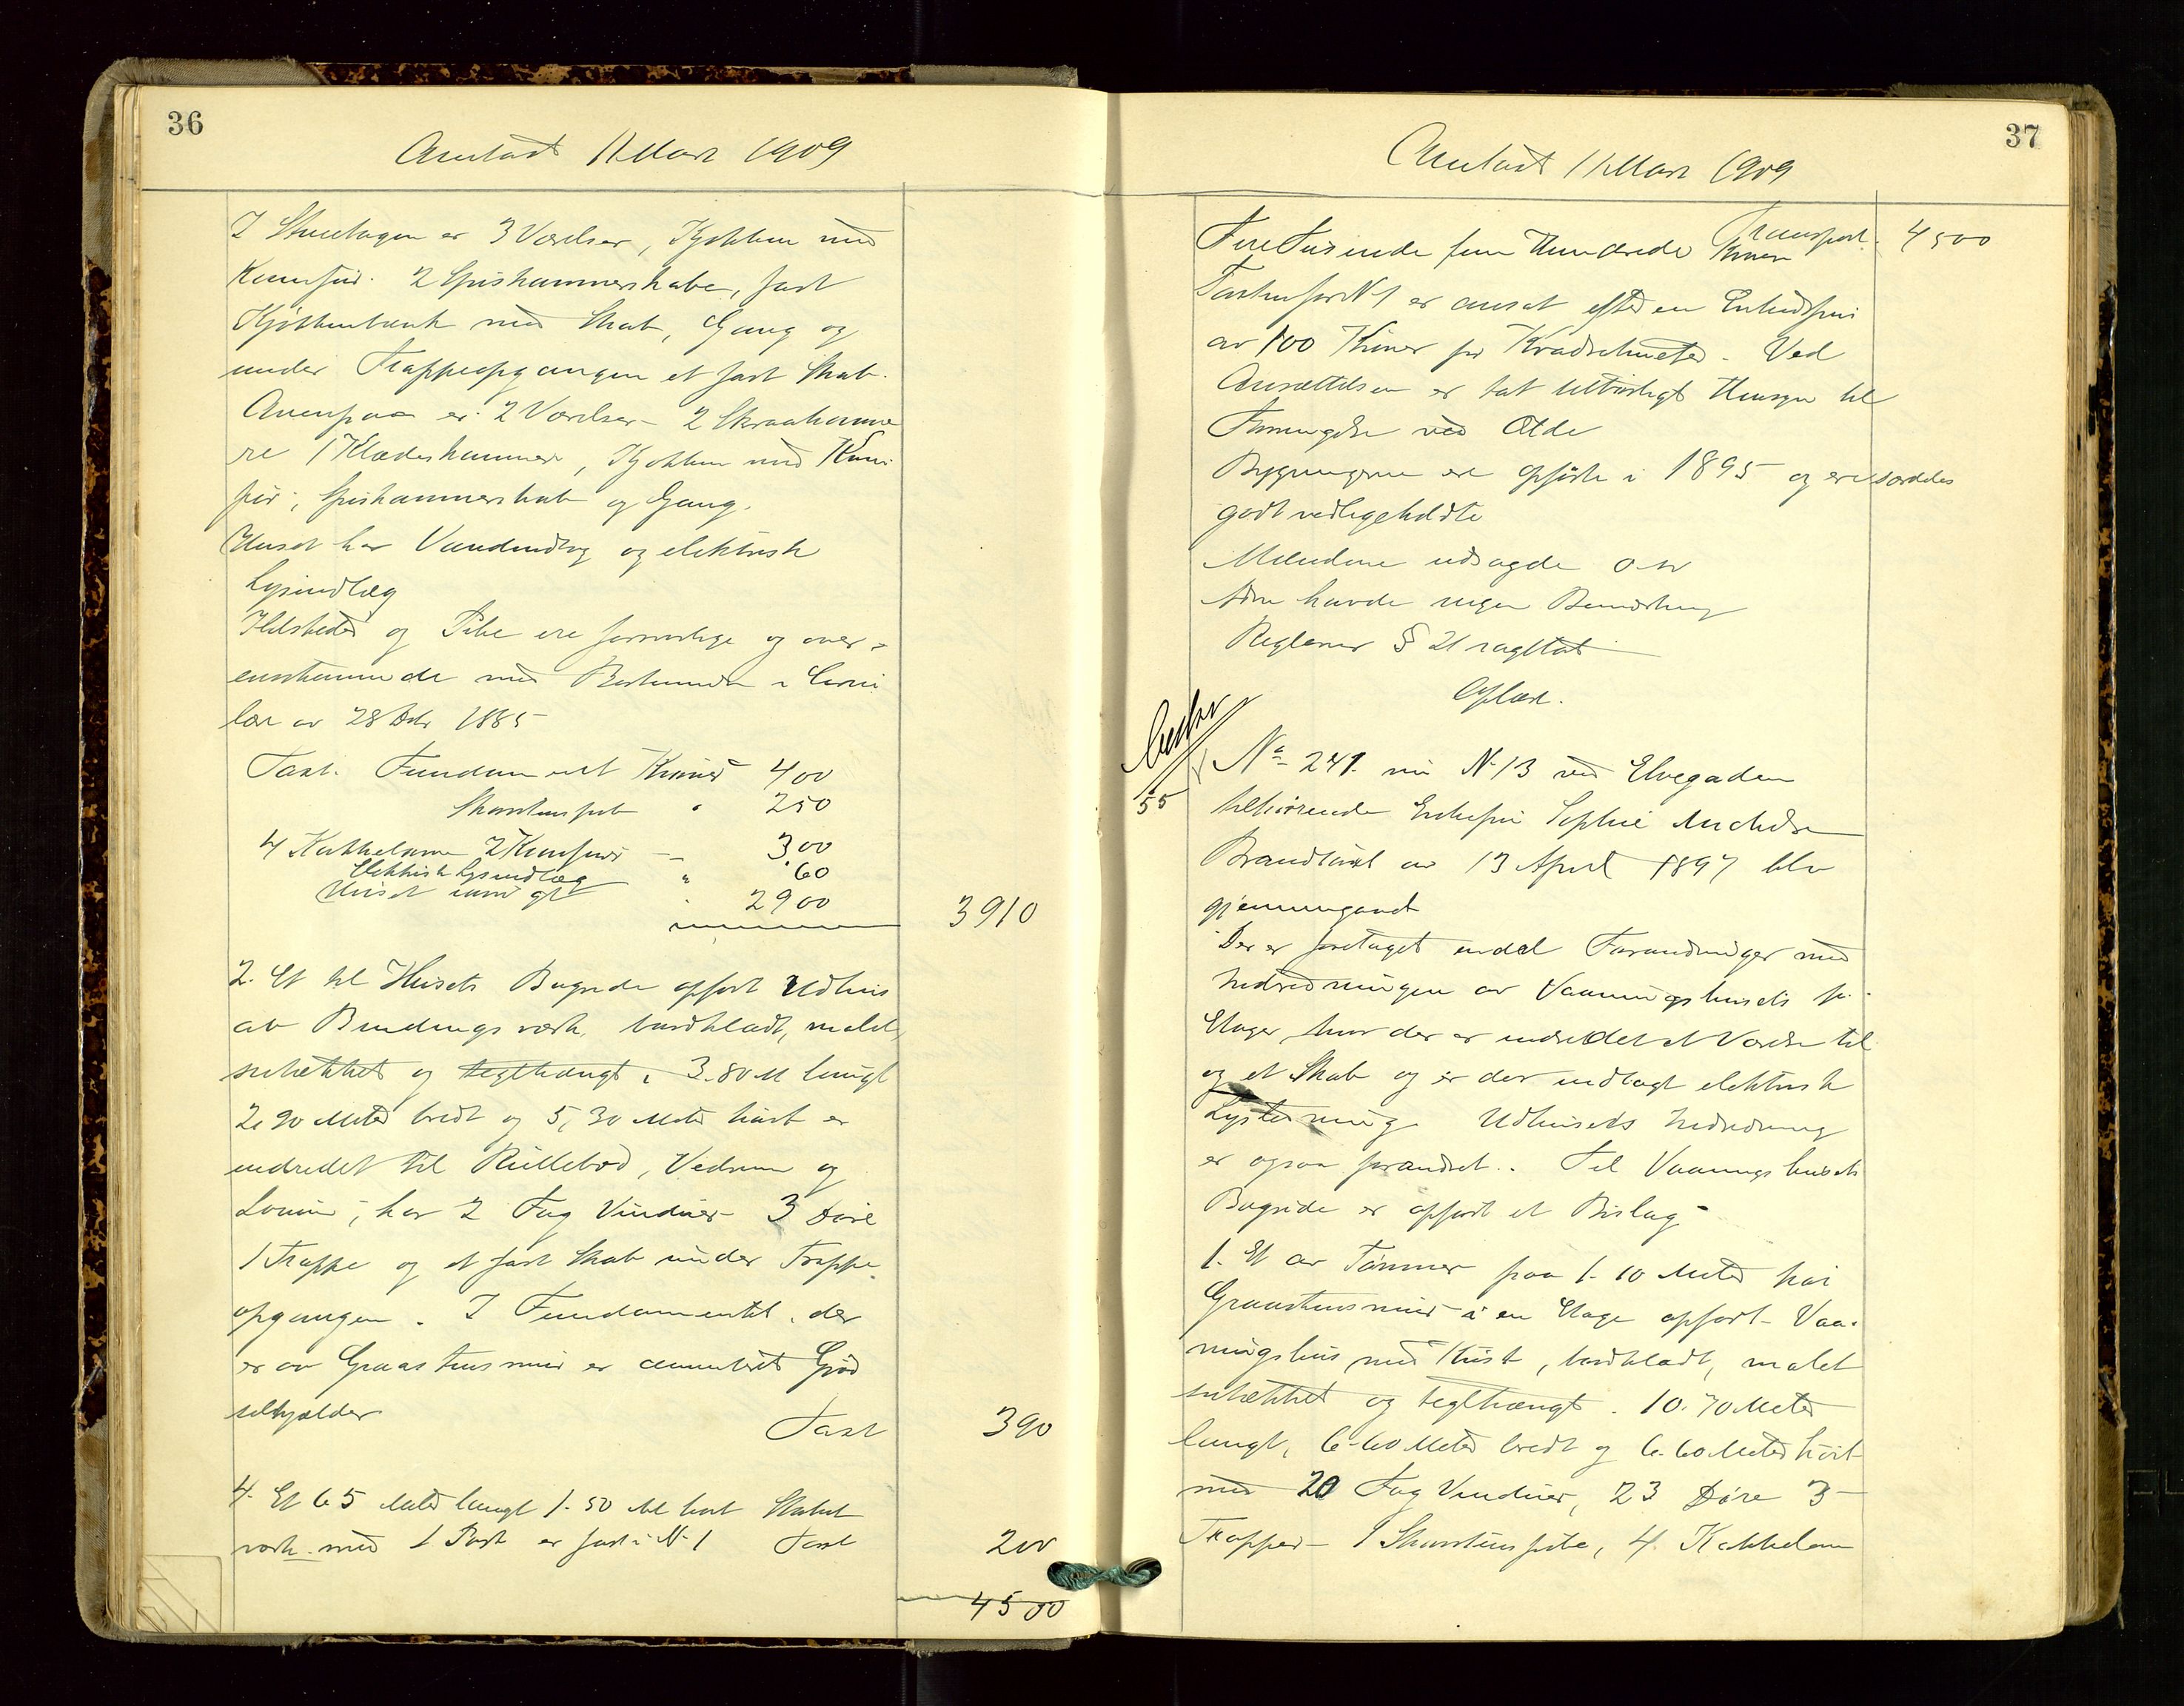 36
Anatast 11 Mars 1909
I Stueetagen er 3 Værelser, Kjøkken med
Komfur. 2 Spiskammerskabe, fast
Kjøkkenbænk med Skab, Gang og
under Trappeopgangen et fast Skab.
Ovenpaa er 2 Værelser - 2 Skraakamme
re 1 Klædeskammer, Kjøkken med Kom
fur, Spiskammerskab og Gang.
Huset har Vandindlæg og elektrisk
Lysindlæg
Ildsteder og Pibe ere forsvarlige og over-
ensstemmende med Bestemmelse i Cirku
lær av 28 1885
Taxt. Fundament Kroner 400
Skorstenspibe " 250
4 Kakkelovne 2 Komfurer - 300
Elektrisk Lysindlæg " 60
Huset iøvrigt " 2900
3910
2. Et til Husets Bagside opført Udhus
av Bindingsverk, bordklædt, malet,
sutækket og teglhængt, 3.80 M langt
2,90 Meter bredt og 5,30 Meter høit er
indredet til Rullebod, Vedrum og
har 2 Fag Vinduer 3 Døre
1 Trappe og et fast Skab under Trappe
opgangen. I Fundamentet, der
er av Graastensmur er cementeret Grød
selkjælder
Taxt 390
4. Et 65 Meter langt 1.50 M høit Stakit
værk med 1 Port er fast i N 1 Taxt 200
4500
37
Anatast 11 Mars 1909
Transport. 4500
Fire Tusinde fem Hundrede Kroner
Taxten for N 1 er ansat efter en Enhedspris
av 100 Kroner pr Kvadratmeter. Ved
Ansættelsen er tat tilbørligt Hensyn til
Forringelse ved Ælde
Bygningerne ere opførte i 1895 og ere særdeles
godt vedligeholdte
Mændene udsagde o s v
havde ingen Bemerkning
Reglerne § 21 iagttat
Oplæst.
55
No 241. nu N 13 ved Elvegaden
tilhørende Enkefru Sophie Michelsen
Brandtaxt av 13 April 1897 blev
gjennemgaaet
Der er foretaget endel Forandringer med
Indredningen av Vaaningshusets
Etager, hvor der er indredet et Værelse til
og et Skab og er der indlagt elektrisk
Lysledning Udhusets Indredning
er ogsaa forandret. Til Vaaningshusets
Bagside er opført et Bislag
1. Et av Tømmer paa 1.10 Meter høi
Graastensmur i en Etage opført Vaa-
ningshus med Kvist, bordklædt, malet
sutækket og teglhængt. 10.70 Meter
langt, 6.60 Meter bredt og 6.60 Meter høit
med 20 Fag Vinduer, 23 Døre 3
Trapper - 1 Skorstenspibe, 4 Kakkelovne